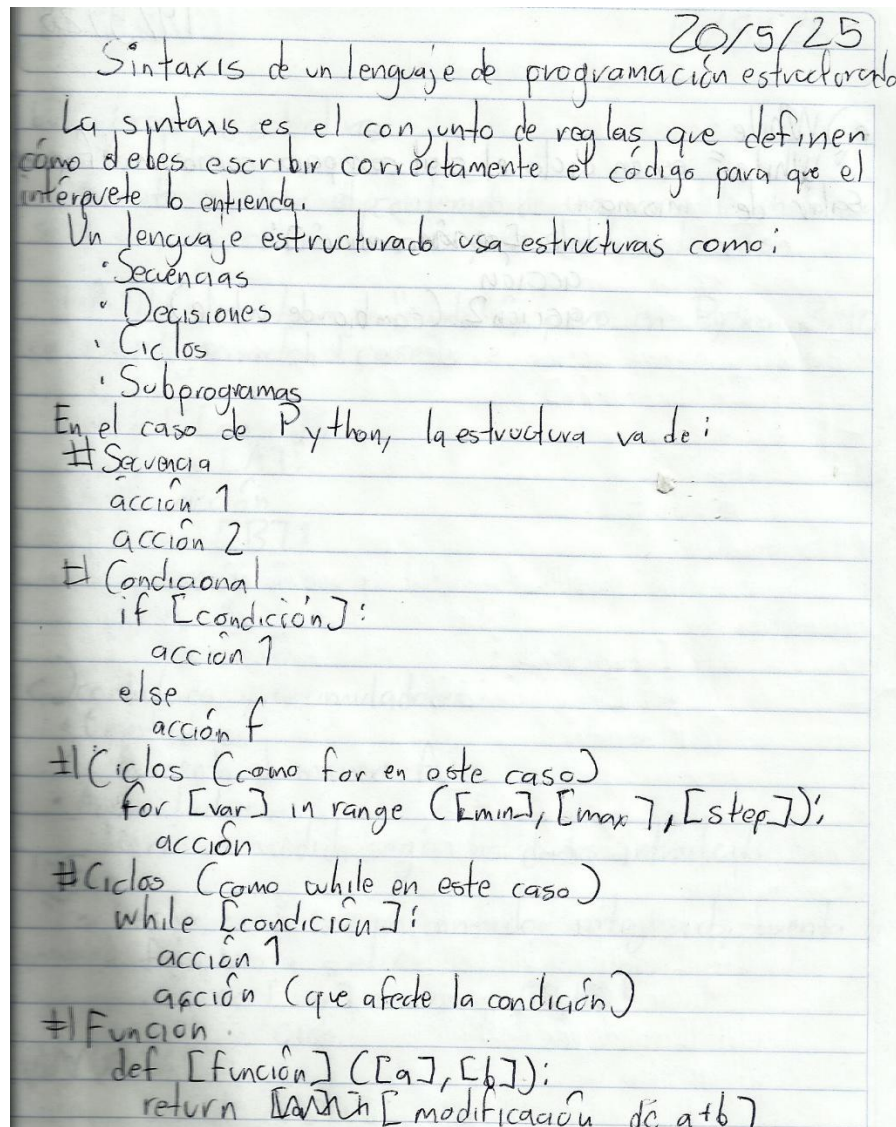 20/5/25
Sintaxis de un lenguaje de programación estructurado
La sintaxis es el conjunto de reglas que definen
cómo debes escribir correctamente el código para que el
intérpvete lo entienda.
Un lenguaje estructurado usa estructuras como:
· Secuencias
· Decisiones
· Ciclos
· Subprogramas
En el caso de Python, la estructura va de:
# Secuencia
acción 1
acción 2
# Condicional
if [condición]:
acción 1
else
acción f
# Ciclos (como for en este caso)
for [var] in range ([min], [max], [step]):
acción
# Ciclos (como while en este caso)
while [condición]:
acción 1
acción (que afecte la condición)
# Funcion
def [función] ([a], [b]):
return [modificación de a+b]